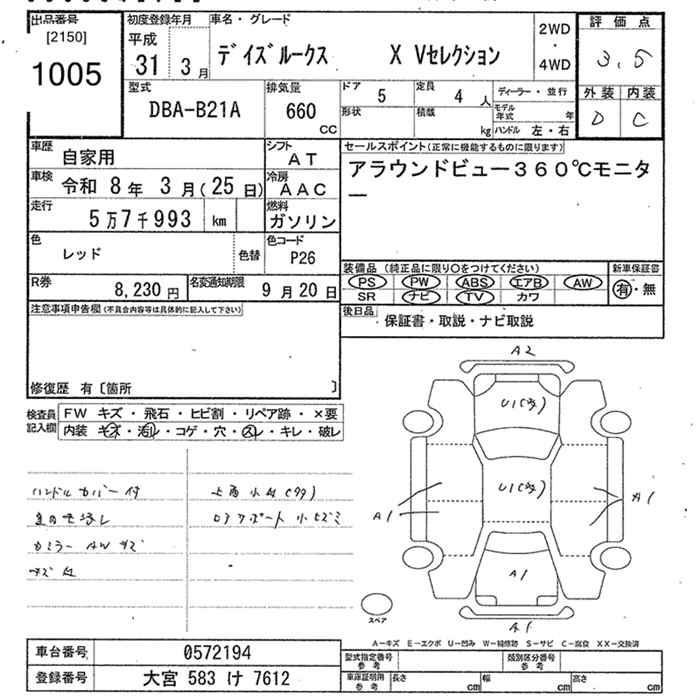 出品番号
[2150]
1005
初度登録年月
平成
31 3 月
車名・グレード
デイズルークス X Vセレクション
2WD
・
4WD
評価点
3.5
外装 内装
D C
型式
DBA-B21A
排気量
660
CC
ドア
5
定員
4 人
ディーラー・並行
形状
積載
kg
モデル年式
年
ハンドル 左・右
車歴
自家用
シフト
AT
セールスポイント(正常に機能するものに限ります)
アラウンドビュー360℃モニタ
ー
車検
令和 8 年 3 月(25 日)
冷房
AAC
走行
5万7千993 km
燃料
ガソリン
色
レッド
色替
色コード
P26
R券
8,230 円
名変通知期限
9 月 20 日
装備品 (純正品に限り〇をつけてください)
PS PW ABS エアB AW
SR ナビ TV カワ
新車保証書
有・無
後日品
保証書・取説・ナビ取説
注意事項申告欄(不具合内容等は具体的に記入して下さい)
修復歴 有〔箇所 〕
検査員
記入欄
FW キズ・飛石・ヒビ割・リペア跡・×要
内装 キズ・汚れ・コゲ・穴・スレ・キレ・破レ
ハンドルカバー付
カミラー AWキズ
A2
U1
U1
A1
A1
A1
A1
スペア
A-キズ E-エクボ U-凹み W-補修跡 S-サビ C-腐食 XX-交換済
車台番号
0572194
登録番号
大宮 583 け 7612
型式指定番号
参考
類別区分番号
参考
車庫証明用
参考
長さ
cm
幅
cm
高さ
cm